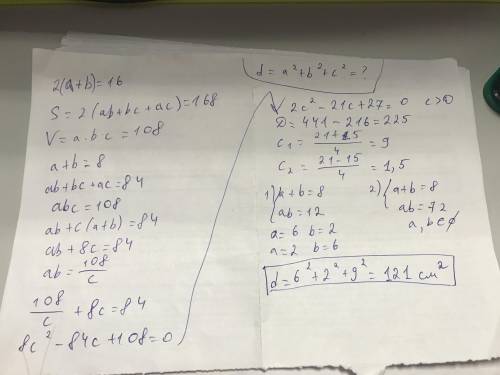 2(a+b)=16
S = 2(ab+bc+ac)=168
V = a.b c = 108
a+b=8
ab+bc+ac=84
abc=108
ab+c(a+b)=84
ab+8c=84
ab = 108/c
108/c + 8c = 84
8c² - 84c + 108 = 0
d = a² + b² + c² = ?
2c² - 21c + 27 = 0 c>0
D = 441 - 216 = 225
c₁ = (21+15)/4 = 9
c₂ = (21-15)/4 = 1,5
1) { a+b=8 2) { a+b=8
ab=12 ab=72
a=6 b=2 a, b ∈ ∅
a=2 b=6
d = 6² + 2² + 9² = 121 см²